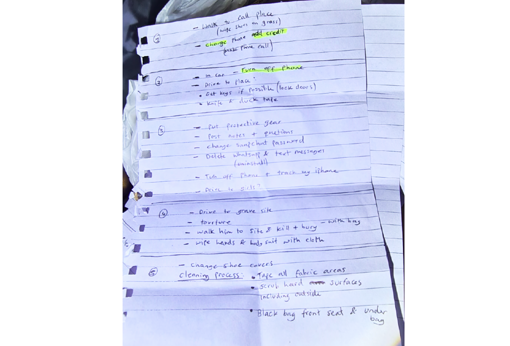 ① - Walk to call place
(wipe shoes on grass)
- Change phone add credit
② In car - Turn off iPhone
- Drive to place
• Get keys if possible (lock doors)
• Knife & duck tape
③ - Put protective gear
- Post notes +
- Change snapchat password
- Delete whatsapp & text messages
(uninstall)
- Turn off iPhone & track my iphone
④ - Drive to grave site
- tourture
- walk him to site & kill + bury - with bag
- wipe hands & body suit with cloth
- Change shoe covers
⑤ Cleaning process: • Tape all fabric areas
• scrub hard surfaces
including outside
• Black bag front seat & under
bag